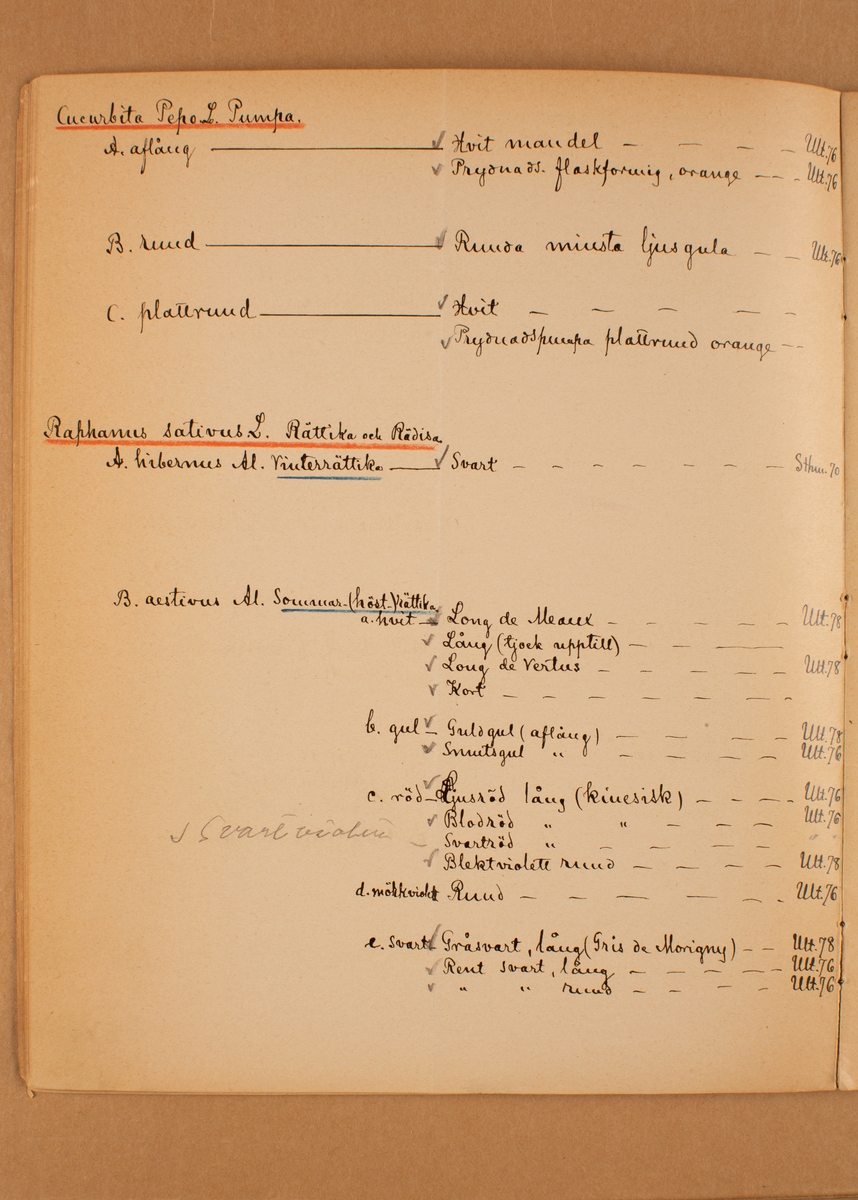 Cucurbita Pepo L. Pumpa.
A. aflång — Hvit mandel – – – – Ult. 76
Prydnads. flaskformig, orange – – – Ult. 76
B. rund — Runda minsta ljusgula – – Ult. 76
C. plattrund — Hvit – – – – –
Prydnadspumpa plattrund orange – –
Raphanus sativus L. Rättika och Rädisa.
A. hibernus Al. Vinterrättika — Svart – – – – – – – Sthm. 70
B. aestivus Al. Sommar-(höst-)rättika.
a. hvit – Long de Meaux – – – – – Ult. 78
Lång (tjock upptill) – – –
Long de Vertus – – – – – Ult. 78
Kort – – – – – – –
b. gul – Guldgul (aflång) – – – – Ult. 78
Smutsgul " – – – – Ult. 76
c. röd – Ljusröd lång (kinesisk) – – – Ult. 76
Blodröd " " – – – Ult. 76
Svartviolett – Svartröd " – – – – " "
Blekviolett rund – – – – Ult. 78
d. mörkviolet Rund – – – – – Ult. 76
e. svart Gråsvart, lång (Gris de Morigny) – – Ult. 78
Rent svart, lång – – – – – Ult. 76
" " rund – – – – Ult. 76